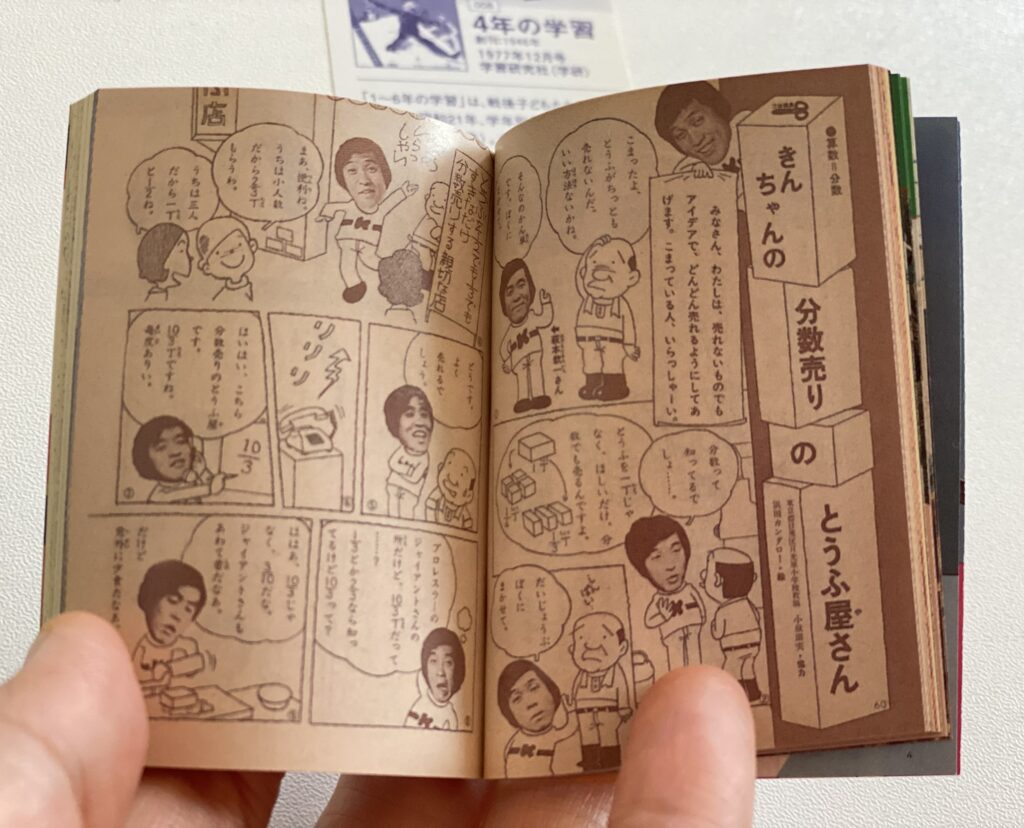 008
4年の学習
創刊:1946年
1977年12月号
学習研究社(学研)
「1～6年の学習」は、戦後子どもた
●算数=分数
8
きんちゃんの
分数売り
の
とうふ屋さん
みなさん、わたしは、売れないものでも
アイデアで、どんどん売れるようにしてあ
げます。こまっている人、いらっしゃーい。
こまったよ、
とうふがちっとも
売れないんだ。
いい方法ないかね。
そんなのかん単
です。ぼくに
萩本欽一さん
分数って
知ってるで
しょ……。
とうふを一丁じゃ
なく、ほしいだけ、分
数でも売るんですよ。
だいじょうぶ
ぼくに
まかせて。
60
店
分数売りする親切な店
まあ、便利ね。
うちは小人数
だから
もらうわ。
うちは三人
だから一丁
ど
どうです。
よく
売れるで
しょう。
リリリン
はいはい、こちら
分数売りのとうふ屋
です。
10/3丁ですね。
毎度あり。
10/3
プロレスラーの
ジャイアントさんの
所だけど、10/3丁だって
……?
てるけど10/3って?
ははあ、10/3じゃ
なく、3/10だな。
ジャイアントさんも
あわて者だなあ。
だけど